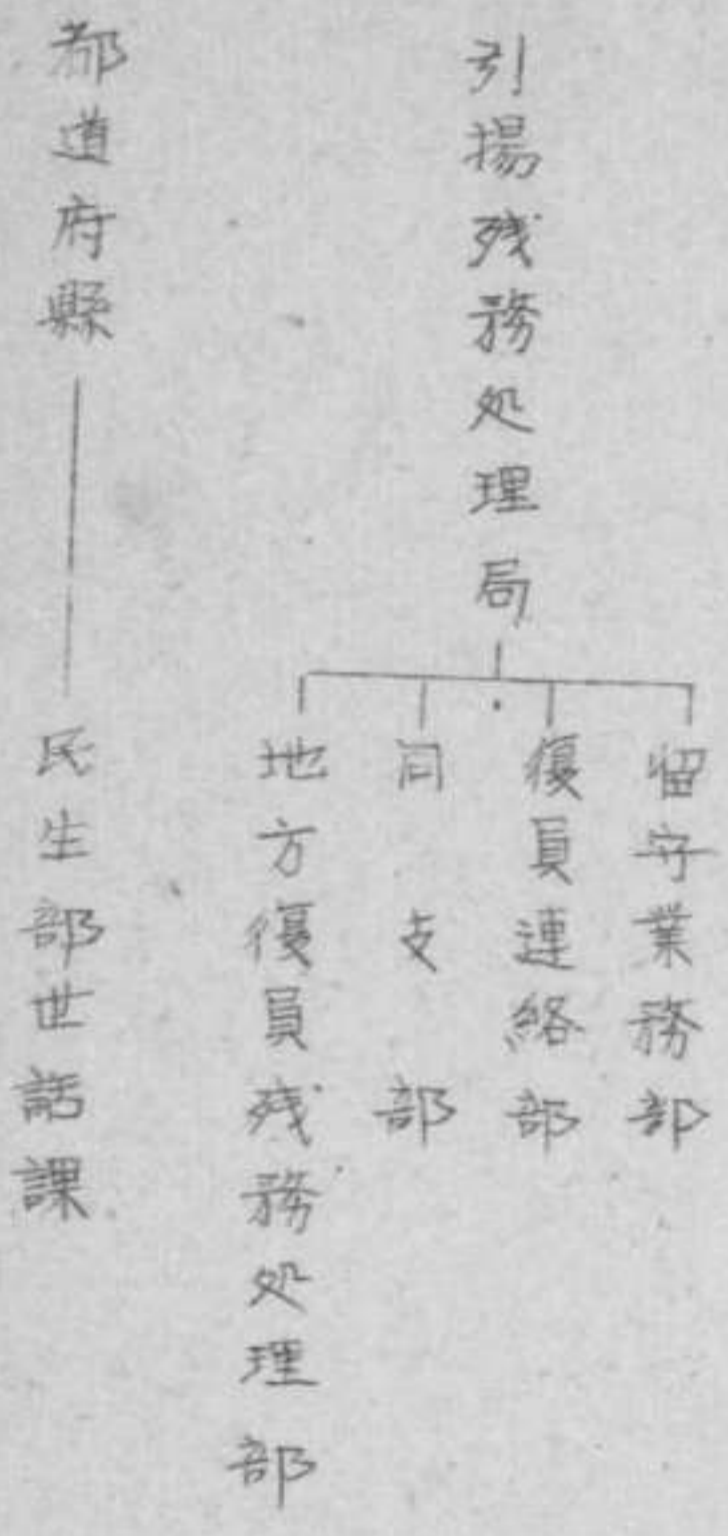 引揚残務処理局
留守業務部
復員連絡部
同支部
地方復員残務処理部
都道府縣
民生部世話課